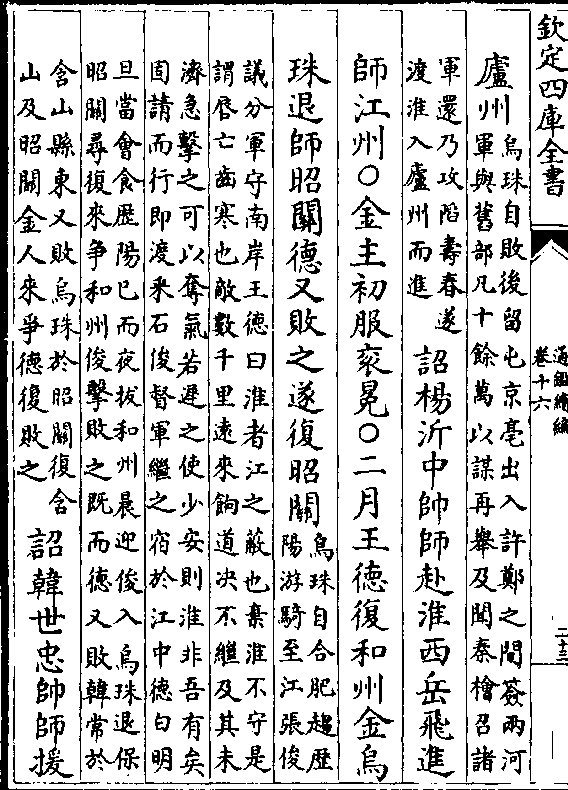 欽定四庫全書
通鑑續編
卷十六
二十三
廬州
烏珠自敗後留屯京亳出入許鄭之間簽兩河
軍與舊部凡十餘萬以謀再舉及聞秦檜召諸
軍還乃攻陷壽春遂
渡淮入廬州而進
詔楊沂中帥師赴淮西岳飛進
師江州○金主初服衮冕○二月王德復和州金烏
珠退師昭關德又敗之遂復昭關
烏珠自合肥趨歷
陽游騎至江張俊
議分軍守南岸王德曰淮者江之蔽也棄淮不守是
謂唇亡齒寒也敵數千里遠來餉道决不繼及其未
濟急擊之可以奪氣若遲之使少安則淮非吾有矣
固請而行即渡采石俊督軍繼之宿於江中德曰明
旦當會食歷陽已而夜拔和州晨迎俊入烏珠退保
昭關尋復來争和州俊擊敗之既而德又敗韓常於
含山縣東又敗烏珠於昭關復含
山及昭關金人來爭德復敗之
詔韓世忠帥師援